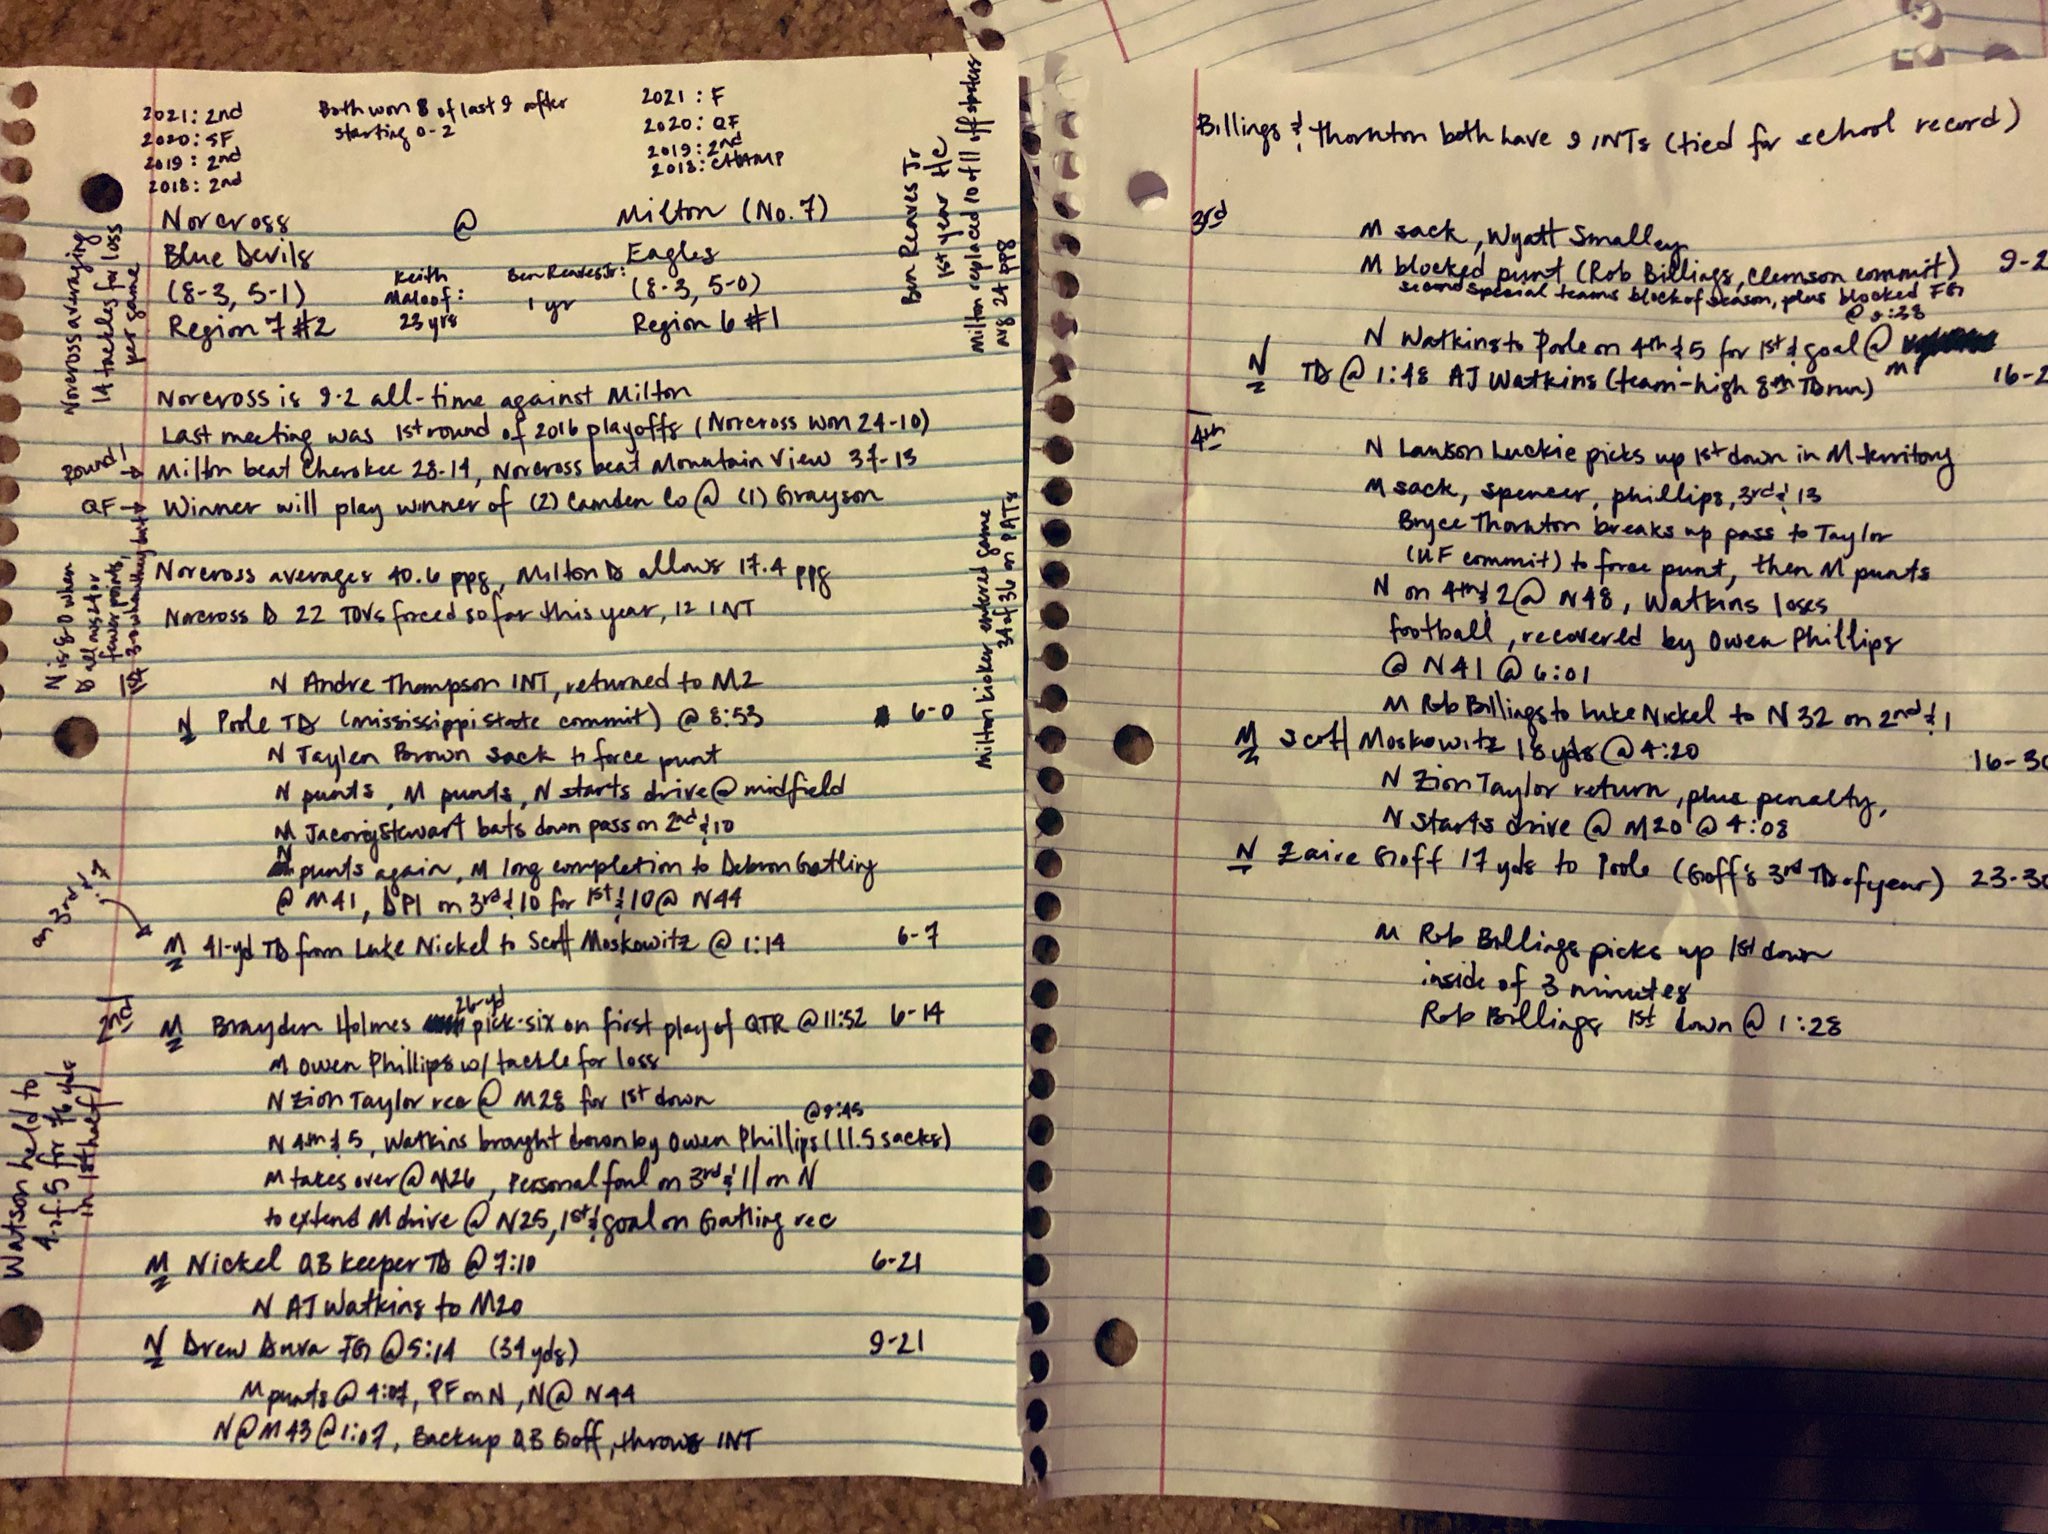 2021: 2nd
2020: SF
2019: 2nd
2018: 2nd
Both won 8 of last 9 after
starting 0-2
2021: F
2020: QF
2019: 2nd
2018: CHAMP
Norcross @ Milton (No. 7)
Blue Devils Eagles
(8-3, 5-1) (8-3, 5-0)
Region 7 #2 Region 6 #1
Keith
Maloof:
23 yrs
Ben Reaves Jr:
1 yr
Ben Reaves Jr
1st year H/C
Milton replaced 10 of 11 off starters
avg 24 ppg
Norcross averaging
14 tackles for loss
per game
Norcross is 9-2 all-time against Milton
Last meeting was 1st round of 2016 playoffs (Norcross won 24-10)
Round 1 → Milton beat Cherokee 28-14, Norcross beat Mountain View 37-13
QF → Winner will play winner of (2) Camden Co @ (1) Grayson
Norcross averages 40.6 ppg, Milton D allows 17.4 ppg
Norcross D 22 TOVs forced so far this year, 12 INT
N is 8-0 when
D allows 24 or
fewer points,
0-3 when they don't
Milton kicker entered game
34 of 36 on PATs
1st
N Andre Thompson INT, returned to M2
N Poole TD (Mississippi State commit) @ 8:53 6-0
N Taylen Brown sack to force punt
N punts, M punts, N starts drive @ midfield
M Jacorey Stewart bats down pass on 2nd & 10
N punts again, M long completion to Debron Gatling
@ M41, DPI on 3rd & 10 for 1st & 10 @ N44
on 3rd & 7
M 41-yd TD from Luke Nickel to Scott Moskowitz @ 1:14 6-7
2nd
M Brayden Holmes 26 yd pick-six on first play of QTR @ 11:52 6-14
M Owen Phillips w/ tackle for loss
N Zion Taylor rec @ M28 for 1st down
@ 9:45
N 4th & 5, Watkins brought down by Owen Phillips (11.5 sacks)
M takes over @ M26, Personal foul on 3rd & 11 on N
to extend M drive @ N25, 1st & goal on Gatling rec
M Nickel QB keeper TD @ 7:10 6-21
N AJ Watkins to M20
N Drew Duva FG @ 5:14 (34 yds) 9-21
M punts @ 4:07, PF on N, N @ N44
N @ M43 @ 1:07, Backup QB Goff, throws INT
Watson held to
4 of 5 for 76 yds
in 1st half
Billings & Thornton both have 9 INTs (tied for school record)
3rd
M sack, Wyatt Smalley
M blocked punt (Rob Billings, Clemson commit) 9-2
second special teams block of season, plus blocked FG
@ 9:38
N Watkins to Poole on 4th & 5 for 1st & goal @ M
N TD @ 1:48 AJ Watkins (team-high 8th TD run) 16-2
4th
N Lawson Luckie picks up 1st down in M territory
M sack, Spencer, Phillips, 3rd & 13
Bryce Thornton breaks up pass to Taylor
(UF commit) to force punt, then M punts
N on 4th & 2 @ N48, Watkins loses
football, recovered by Owen Phillips
@ N41 @ 6:01
M Rob Billings to Luke Nickel to N32 on 2nd & 1
M Scott Moskowitz 18 yds @ 4:20 16-30
N Zion Taylor return, plus penalty,
N starts drive @ M20 @ 4:08
N Zaire Goff 17 yds to Poole (Goff's 3rd TD of year) 23-30
M Rob Billings picks up 1st down
inside of 3 minutes
Rob Billings 1st down @ 1:28